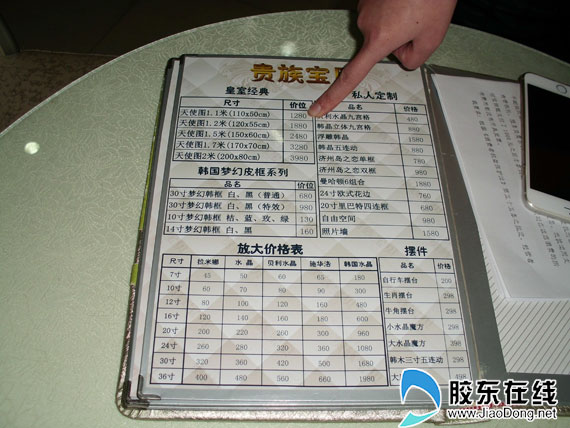 贵族宝
皇室经典
尺寸 价位
天使图1.1米(110x60cm) 1280
天使图1.2米(120x55cm) 1880
天使图1.5米(150x60cm) 2480
天使图1.7米(170x70cm) 3280
天使图2米(200x80cm) 3980
韩国梦幻皮框系列
品名 价位
30寸梦幻韩框 白、黑(普通) 680
30寸梦幻韩框 白、黑(特效) 980
10寸梦幻韩框 桔、蓝、玫、绿 130
14寸梦幻韩框 白、黑 160
私人定制
品名 价格
利水晶九宫格 480
韩晶立体九宫格 880
浮雕韩晶 780
韩晶五连动 880
济州岛之恋单框 780
济州岛之恋双框
曼哈顿6组合 1880
24寸欧式花边 760
20寸里巴特四连框 680
自由空间 980
照片墙 1580
放大价格表
尺寸 拉米娜 水晶 贝利水晶 施华洛 韩国水晶
7寸 45 30 60 65 180
10寸 60 70 80 90 300
12寸 80 100 120 160 480
16寸 120 140 160 180 600
20寸 200 220 260 300 900
24寸 260 280 320 360 1080
30寸 320 360 420 500 1680
36寸 400 480 560 660 1980
摆件
品名 价格
自行车摆台 200
生肖摆台 298
牛角摆台 298
小水晶魔方 298
大水晶魔方 398
韩木三寸五连动 298
大
胶东在线
www.JiaoDong.net